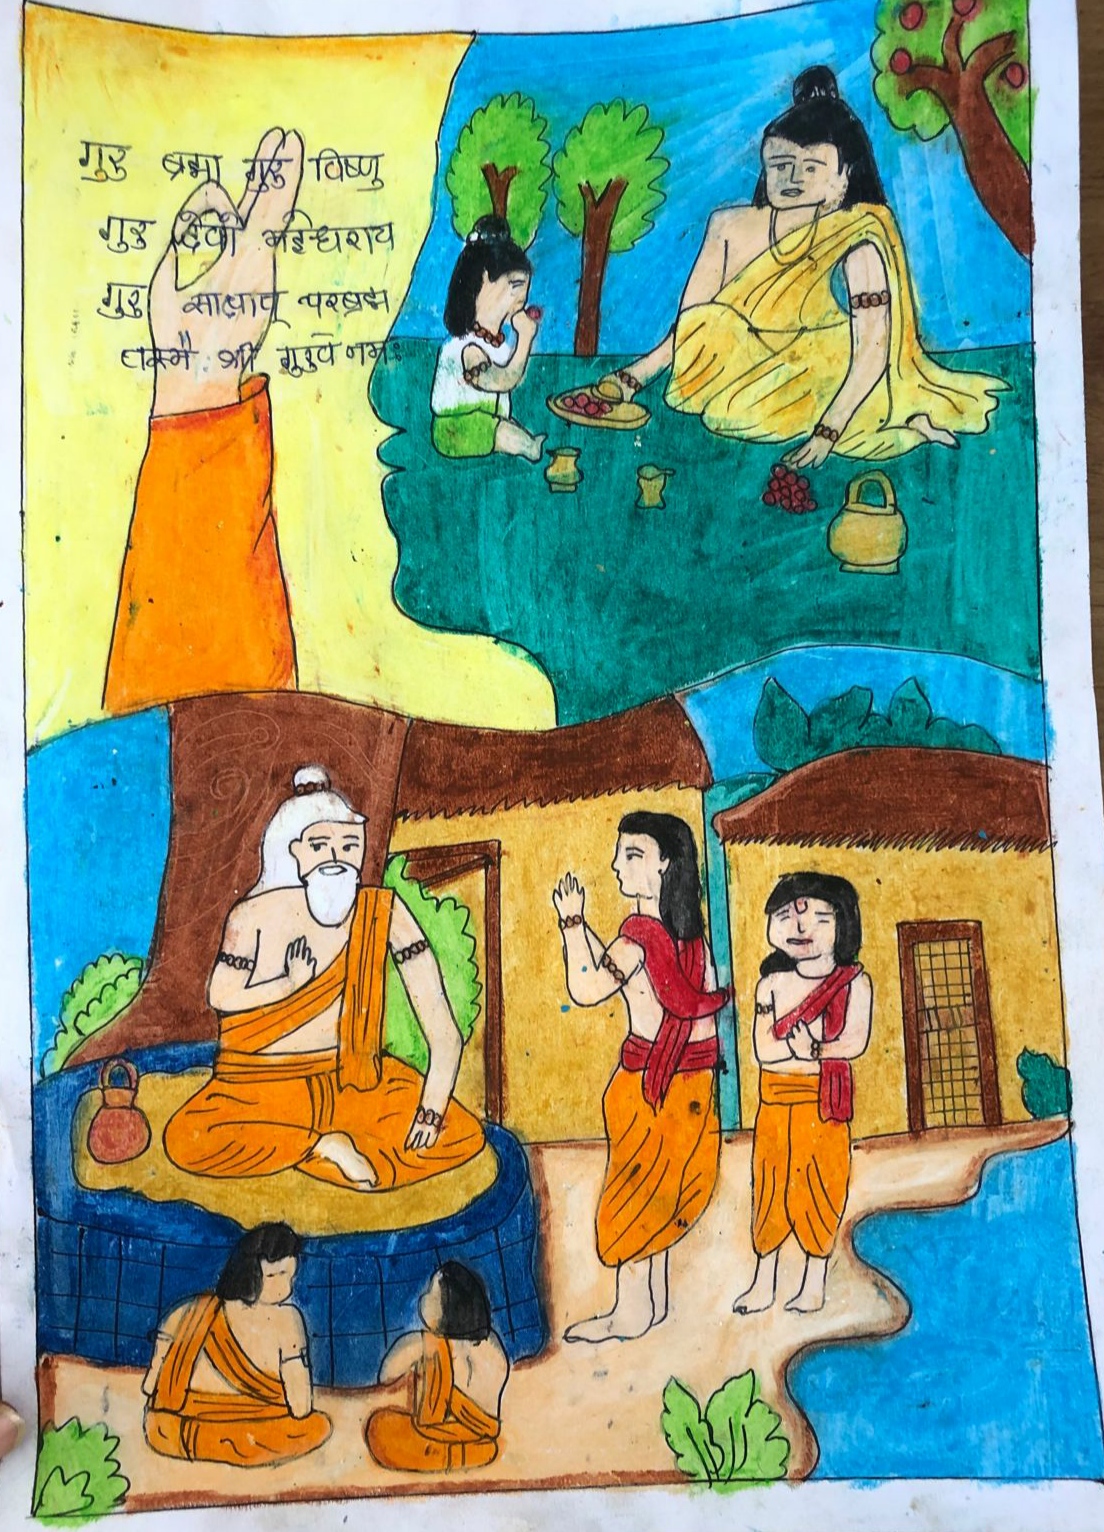 गुरु ब्रह्मा गुरु विष्णु
गुरु देवो मईश्धराय
गुरु साक्षात् परब्रह्म
तस्मै श्री गुरुवे नमः